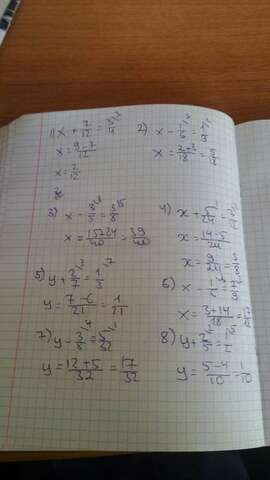 1) x + 7/12 = 3/4
x = 9-7/12
x = 2/12
2) x - 1/6 = 1/9
x = 2+3/18 = 5/18
3) x - 3/5 = 3/8
x = 15+24/40 = 39/40
4) x + 5/24
x = 14-5/24
x = 9/24 = 3/8
5) y + 2/7 = 1/3
y = 7-6/21 = 1/21
6) x - 1/6 = 7/9
x = 3+14/18
7) y - 3/8 = 5/32
y = 12+5/32 = 17/32
8) y + 2/5 = 1/2
y = 5-4/10 = 1/10